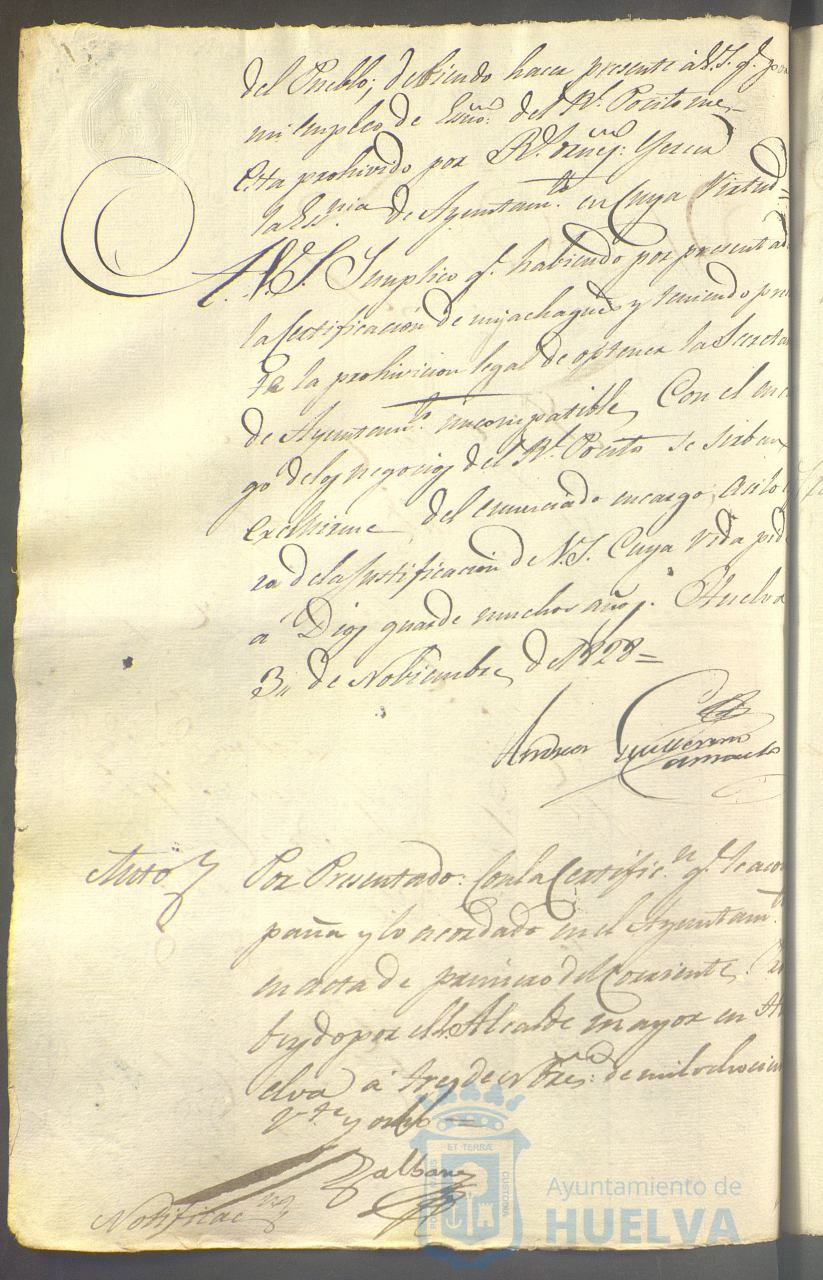 del Pueblo; debiendo hacer presente á V.S. q.e por
mi empleo de Esno. del Rl. Pocito me
esta prohivido por Rl. orn.
la Es.nia de Ayuntam.to en Cuya Virtud=
A V.S. Suplico q.e habiendo por presentad
la Certificación de mis achaques y teniendo pre
la prohivicion legal de optener la Secreta
de Ayuntam.to incompatible Con el enca
go delos negocios del Rl. Pocito se sirban
Exclhirme del enunciado encargo, asi lo
ra de la Justificación de V.S. Cuya Vida pide
á Dios guarde muchos años. Huelva
3,, de Nobiembre de 1828=
Andres Guillermo
Auto
Por Presentado: Con la Certific.n q.e le acom
paña y lo acordado en el Ayuntam.to
en acta de primero del Corriente.
beydo por el Sr. Alcalde mayor en Hu
elva á tres de Nbre: de mil ochocien
Vte. y ocho=
Notificac.n
ET TERRÆ
CUSTODIA
Ayuntamiento de
HUELVA